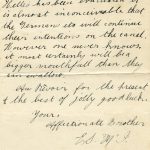 Hollis has been evacuated it
is almost inconceivable that
the Germans etc will continue
their intentions on the canal
However one never knows,
it most certainly will be a
bigger mouthful than they
can swallow.
Au Revoir for the present
& the best of jolly good luck.
Yours
Affectionate Brother